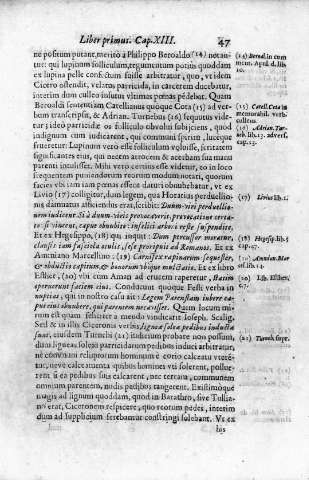 Liber primus. Cap. XIII. 47
ne positum putant, merito à Philippo Beroaldo (14) notan-
tur: qui lupinum folliculum, tegumentum potius quoddam
ex lupina pelle confectum fuisse arbitratur, quo, vt idem
Cicero ostendit, velatus parricida, in carcerem ducebatur,
interim dum culleo insutus vltimas poenas pédebat. Quam
Beroaldi sententiam Catellianus quóque Cota (15) ad ver-
bum transcripsit, & Adrian. Turnebus (16) sequutus vide-
tur: ideò parricidæ os folliculo obuolui subijciens, quod
indignum cum iudicarent, qui communi spiritu, lucéque
frueretur. Lupinum verò esse folliculum voluisse, scriténtes
significantes eius, qui necem atrocem & nepharam suæ manu
parenti intulisset. Mihi verò certius esse videtur, eo in loco
frequentem puniendorum reorum modum notari, quorum
facies vbi iam iam poenas essent daturi obnubebatur, vt ex
Livio (17) colligitur, dum legem, qua Horatius perduellio-
nis damnatus afficiendus erat, scribit: Duum-viri perduelli-
onem iudicent. Si à duum-viris prouocarit, prouocatione certa-
to: si vincent, caput obnubito: infelici arbori reste suspendito.
Et ex Hegesippo, (18) qui inquit: Dum percussor moratur,
clausit iam fasciola oculis, sese proripuit ad Romanos. Et ex
Ammiano Marcellino: (19) Carnifex rapinarum sequester,
& obductio capitum, & bonorum vbique multatio. Et ex libro
Esther, (20) vbi cum Aman ad crucem raperetur, statim
operuerunt faciem eius. Conducunt quóque Festi verba in
nuptias, qui in nostro casu ait: Legem Parenstam iubere ca-
put eius obnubere, qui parentem necauisset. Quem locum mi-
rum est quàm fœlicitèr à mendo vindicarit Ioseph. Scalig.
Sed & in illis Ciceronis verbis, lignea soleæ pedibus inductæ
sunt, eiusdem Turnebi (21) iudicium probare non possum,
dum ligneas soleas parricidarum pedibus induci arbitratur,
ne conuexu reliquorum hominum è corio calceatu vteré-
tur, neue calceamenta quibus homines vti solerent, pollue-
rent si ea pedibus suis calcarent, nec terram, communem
omnium parentem, nudis pedibus tangerent. Existimóque
magis ad lignum quoddam, quod in Barathro, siue Tullia-
no erat, Ciceronem respicere, quo reorum pedes, interim
dum ad supplicium ferebantur constringi solebant. Vt ex
his
(14) Beroal. in com
ment. Apul. d. lib.
10.
(15) Catell. Cota in
memorabil. verb.
culleus.
(16) Adrian. Tur-
neb. lib. 13. advers.
cap. 13.
(17) Livius lib. 1.
(18) Hegesip. lib. 5
cap. 47.
(19) Ammian. Mar-
cel. lib. 14.
(20) Lib. Esther.
c. 7.
(21) Turneb. supr.